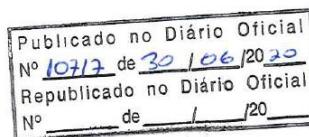 Publicado no Diário Oficial
Nº 10717 de 30 / 06 /2020
Republicado no Diário Oficial
Nº ______ de ____/____/20__